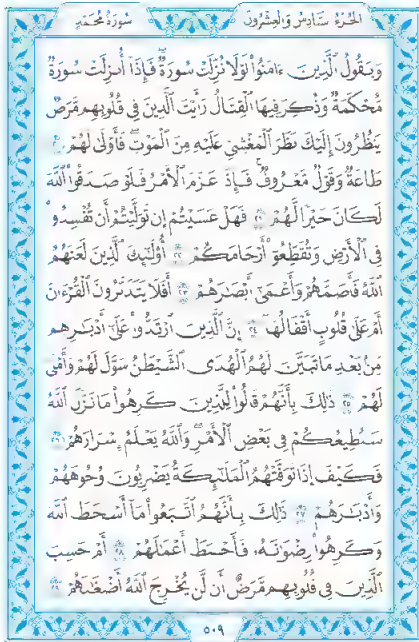 الجزء السادس والعشرون سورة محمد
وَيَقُولُ ٱلَّذِينَ ءَامَنُوا۟ لَوْلَا نُزِّلَتْ سُورَةٌ فَإِذَآ أُنزِلَتْ سُورَةٌ
مُّحْكَمَةٌ وَذُكِرَ فِيهَا ٱلْقِتَالُ رَأَيْتَ ٱلَّذِينَ فِى قُلُوبِهِم مَّرَضٌ
يَنظُرُونَ إِلَيْكَ نَظَرَ ٱلْمَغْشِىِّ عَلَيْهِ مِنَ ٱلْمَوْتِ فَأَوْلَىٰ لَهُمْ ٢٠
طَاعَةٌ وَقَوْلٌ مَّعْرُوفٌ فَإِذَا عَزَمَ ٱلْأَمْرُ فَلَوْ صَدَقُوا۟ ٱللَّهَ
لَكَانَ خَيْرًا لَّهُمْ ٢١ فَهَلْ عَسَيْتُمْ إِن تَوَلَّيْتُمْ أَن تُفْسِدُوا۟
فِى ٱلْأَرْضِ وَتُقَطِّعُوٓا۟ أَرْحَامَكُمْ ٢٢ أُو۟لَٰٓئِكَ ٱلَّذِينَ لَعَنَهُمُ
ٱللَّهُ فَأَصَمَّهُمْ وَأَعْمَىٰٓ أَبْصَٰرَهُمْ ٢٣ أَفَلَا يَتَدَبَّرُونَ ٱلْقُرْءَانَ
أَمْ عَلَىٰ قُلُوبٍ أَقْفَالُهَآ ٢٤ إِنَّ ٱلَّذِينَ ٱرْتَدُّوا۟ عَلَىٰٓ أَدْبَٰرِهِم
مِّنۢ بَعْدِ مَا تَبَيَّنَ لَهُمُ ٱلْهُدَى ٱلشَّيْطَٰنُ سَوَّلَ لَهُمْ وَأَمْلَىٰ
لَهُمْ ٢٥ ذَٰلِكَ بِأَنَّهُمْ قَالُوا۟ لِلَّذِينَ كَرِهُوا۟ مَا نَزَّلَ ٱللَّهُ
سَنُطِيعُكُمْ فِى بَعْضِ ٱلْأَمْرِ وَٱللَّهُ يَعْلَمُ إِسْرَارَهُمْ ٢٦
فَكَيْفَ إِذَا تَوَفَّتْهُمُ ٱلْمَلَٰٓئِكَةُ يَضْرِبُونَ وُجُوهَهُمْ
وَأَدْبَٰرَهُمْ ٢٧ ذَٰلِكَ بِأَنَّهُمُ ٱتَّبَعُوا۟ مَآ أَسْخَطَ ٱللَّهَ
وَكَرِهُوا۟ رِضْوَٰنَهُۥ فَأَحْبَطَ أَعْمَٰلَهُمْ ٢٨ أَمْ حَسِبَ
ٱلَّذِينَ فِى قُلُوبِهِم مَّرَضٌ أَن لَّن يُخْرِجَ ٱللَّهُ أَضْغَٰنَهُمْ ٢٩
٥٠٩